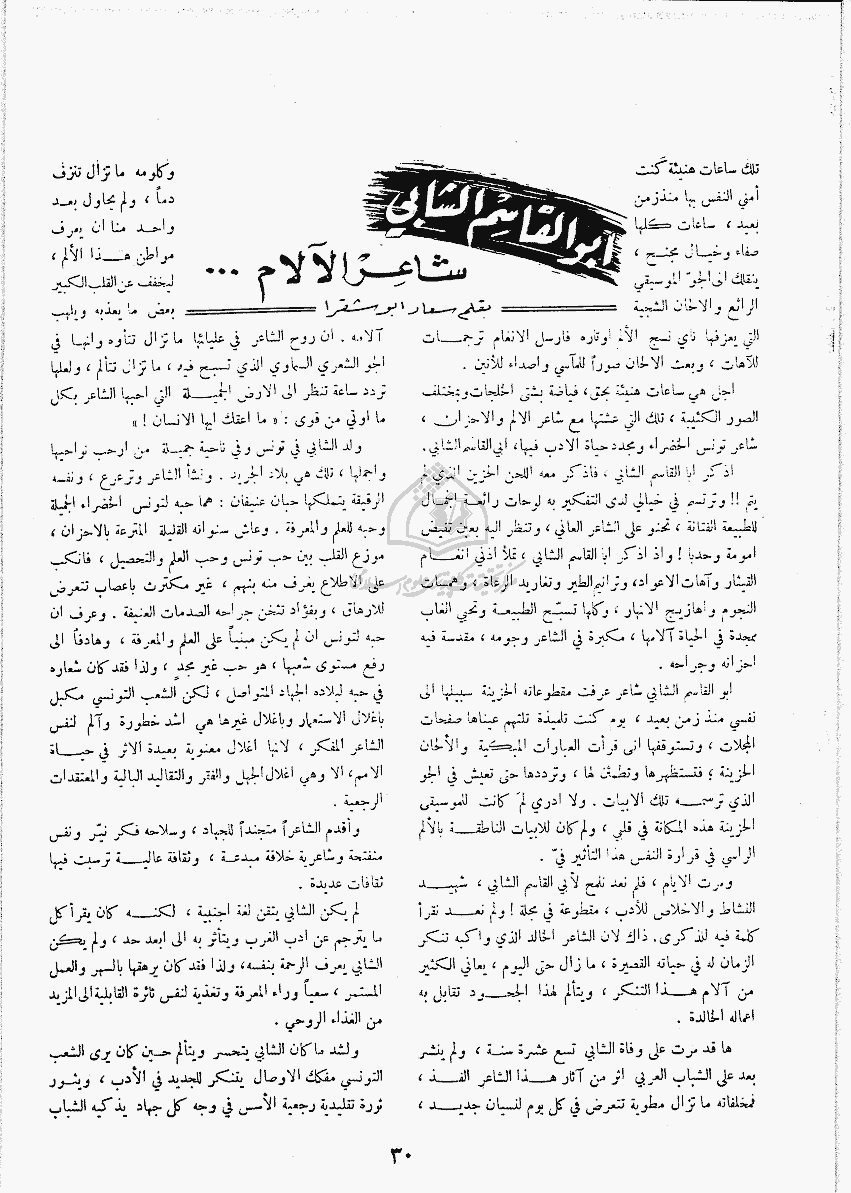 ابو القاسم الشابي
شاعر الآلام ...
بقلم سعاد ابو شقرا
تلك ساعات هنيئة كنت
أمني النفس بها منذ زمن
بعيد ، ساعات كلها
صفاء وخيال مجنح ،
ينقلك الى الجو الموسيقي
الرائع والالحان الشجية
التي يعزفها ناي نسج الألم اوتاره فارسل الانغام ترجمات
للآهات ، وبعث الالحان صوراً للمآسي واصداء للأنين .
اجل هي ساعات هنيئة بحق، فياضة بشتى الخلجات وبمختلف
الصور الكئيبة ، تلك التي عشتها مع شاعر الالم والاحزان ،
شاعر تونس الخضراء ومجدد حياة الادب فيها، ابي القاسم الشابي.
اذكر ابا القاسم الشابي ، فاذكر معه اللحن الحزين الذي لم
يتم !! وترتسم في خيالي لدى التفكير به لوحات رائعة الجمال
للطبيعة الفتانة ، تحنو على الشاعر العاني ، وتنظر اليه بعين تفيض
امومة وحدبا ! واذ اذكر ابا القاسم الشابي ، تملأ أذني انغام
القيثار وآهات الاعواد، وترانيم الطير وتغاريد الرعاة ، وهمسات
النجوم واهازيج الانهار ، وكلها تسبّح الطبيعة وتحيي الغاب
ممجدة في الحياة آلامها ، مكبرة في الشاعر وجومه ، مقدسة فيه
احزانه وجراحه .
ابو القاسم الشابي شاعر عرفت مقطوعاته الحزينة سبيلها الى
نفسي منذ زمن بعيد ، يوم كنت تلميذة تلتهم عيناها صفحات
المجلات ، وتستوقفها انى قرأت العبارات المبكية والألحان
الحزينة ؛ فتستظهرها وتطمئن لها ، وترددها حتى تعيش في الجو
الذي ترسمه تلك الابيات . ولا ادري لمَ كانت للموسيقى
الحزينة هذه المكانة في قلبي ، ولم كان للابيات الناطقة بالألم
الراسي في قرارة النفس هذا التأثير فيّ .
ومرت الايام ، فلم نعد نلمح لأبي القاسم الشابي ، شهيد
النشاط والاخلاص للأدب ، مقطوعة في مجلة ! ولم نعد نقرأ
كلمة فيه للذكرى. ذاك لان الشاعر الخالد الذي واكبه تنكر
الزمان له في حياته القصيرة ، ما زال حتى اليوم ، يعاني الكثير
من آلام هذا التنكر ، ويتألم لهذا الجحود تقابل به
اعماله الخالدة .
ها قد مرت على وفاة الشابي تسع عشرة سنة ، ولم ينشر
بعد على الشباب العربي اثر من آثار هذا الشاعر الفذ ،
فمخلفاته ما تزال مطوية تتعرض في كل يوم لنسيان جديد ،
وكلومه ما تزال تنزف
دماً ، ولم يحاول بعد
واحد منا ان يعرف
مواطن هذا الألم ،
ليخفف عن القلب الكبير
بعض ما يعذبه ويلهب
آلامه . ان روح الشاعر في عليائها ما تزال تتأوه وانها في
الجو الشعري السماوي الذي تسبح فيه ، ما تزال تتألم ، ولعلها
تردد ساعة تنظر الى الارض الجميلة التي احبها الشاعر بكل
ما اوتي من قوى : « ما اعقك ايها الانسان ! »
ولد الشابي في تونس وفي ناحية جميلة من ارحب نواحيها
واجملها ، تلك هي بلاد الجريد . ونشأ الشاعر وترعرع ، ونفسه
الرقيقة يتملكها حبان عنيفان : هما حبه لتونس الخضراء الجميلة
وحبه للعلم والمعرفة . وعاش سنواته القليلة المترعة بالاحزان ،
موزع القلب بين حب تونس وحب العلم والتحصيل ، فانكب
على الاطلاع يغرف منه بنهم ، غير مكترث باعصاب تتعرض
للارهاق ، وبفؤاد تثخن جراحه الصدمات العنيفة . وعرف ان
حبه لتونس ان لم يكن مبنياً على العلم والمعرفة ، وهادفاً الى
رفع مستوى شعبها ، هو حب غير مجدٍ ، ولذا فقد كان شعاره
في حبه لبلاده الجهاد المتواصل ، لكن الشعب التونسي مكبل
باغلال الاستعمار وباغلال غيرها هي اشد خطورة وآلم لنفس
الشاعر المفكر ، لانها اغلال معنوية بعيدة الاثر في حياة
الامم، الا وهي اغلال الجهل والفقر والتقاليد البالية والمعتقدات
الرجعية .
وأقدم الشاعر متجنداً للجهاد ، وسلاحه فكر نيّر ونفس
منفتحة وشاعرية خلاقة مبدعة ، وثقافة عالية ترسبت فيها
ثقافات عديدة .
لم يكن الشابي يتقن لغة اجنبية ، لكنه كان يقرأ كل
ما يترجم عن ادب الغرب ويتأثر به الى ابعد حد ، ولم يكن
الشابي يعرف الرحمة بنفسه، ولذا فقد كان يرهقها بالسهر والعمل
المستمر ، سعياً وراء المعرفة وتغذية لنفس ثائرة القابلية الى المزيد
من الغذاء الروحي .
ولشد ما كان الشابي يتحسر ويتألم حين كان يرى الشعب
التونسي مفكك الاوصال يتنكر للجديد في الأدب ، ويثور
ثورة تقليدية رجعية الأسس في وجه كل جهاد يذكيه الشباب
٣٠